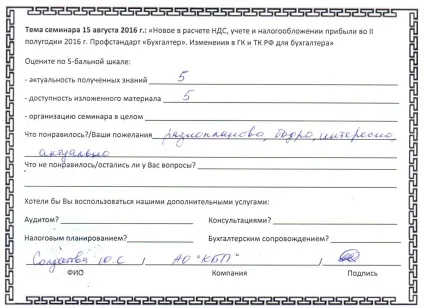 Тема семинара 15 августа 2016 г.: «Новое в расчете НДС, учете и налогообложении прибыли во II
полугодии 2016 г. Профстандарт «Бухгалтер». Изменения в ГК и ТК РФ для бухгалтера»
Оцените по 5-бальной шкале:
- актуальность полученных знаний 5
- доступность изложенного материала 5
- организацию семинара в целом
Что понравилось?/Ваши пожелания разнопланово, бодро, интересно
актуально
Что не понравилось/остались ли у Вас вопросы?
Хотели бы Вы воспользоваться нашими дополнительными услугами:
Аудитом? Консультациями?
Налоговым планированием? Бухгалтерским сопровождением?
Ю.С / АО "КБП" /
ФИО Компания Подпись